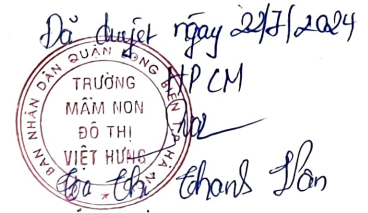 Đã duyệt ngày 22/7/2024
HPCM
ỦY BAN NHÂN DÂN QUẬN LONG BIÊN TP HÀ NỘI
TRƯỜNG
MẦM NON
ĐÔ THỊ
VIỆT HƯNG
Thị Thanh Vân